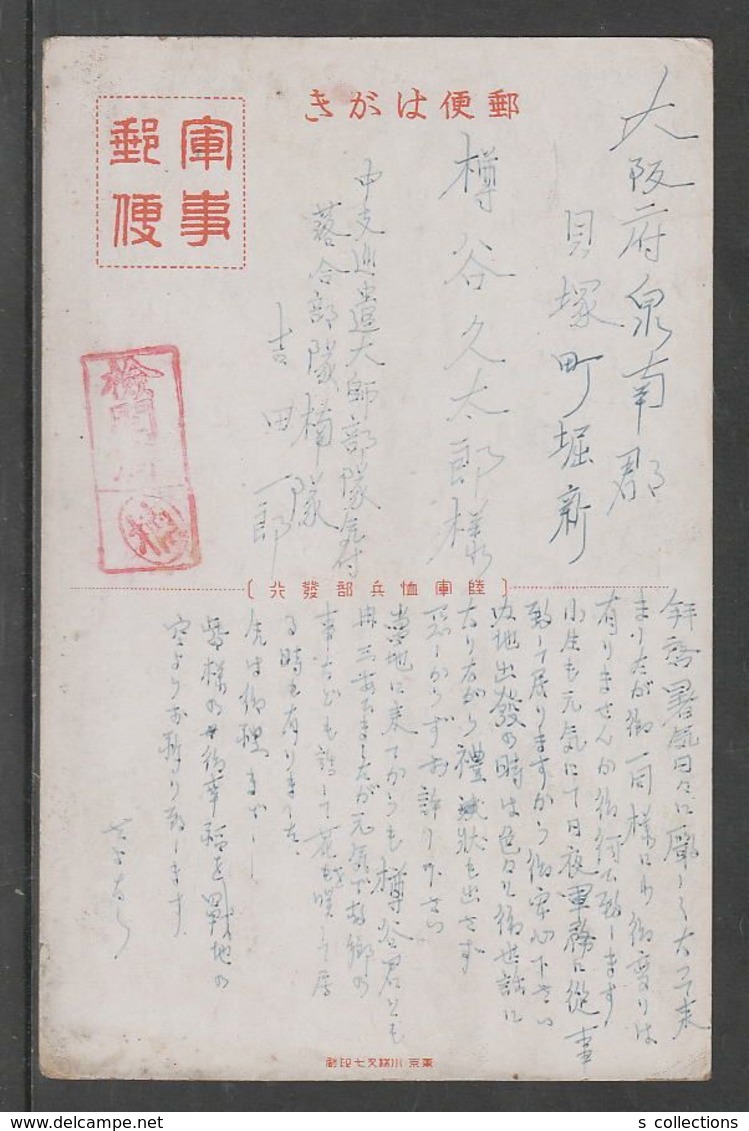 郵便はがき
軍事
郵便
大阪府泉南郡
貝塚町堀新
樽谷久太郎様
中支派遣大師部隊気付
落合部隊楠隊
吉田一郎
検閲済
陸軍恤兵部發行
拝啓暑気日々に厳しく大って来
まりたが御一同様にわ御変りは
有りませんか御伺ひ致します
小生も元気にて日夜軍務に従事
致して居りますから御安心下さい
内地出發の時は色々と御世話に
なりながら禮状も出さず
悪しからずお許し下さい
当地に来てからも樽谷君とも
再三あいましたが元気で故郷の
事なども話して花を咲して居
る時も有りました
先は御禮まで
皆様の御幸福を戦地の
空よりお祈り致します
さよなら
東京 小林又七印刷
s collections